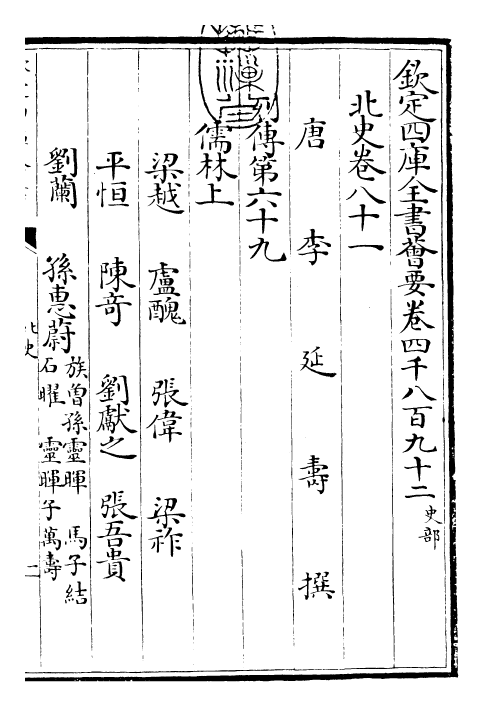 欽定四庫全書薈要卷四千八百九十二 史部
北史卷八十一
唐 李 延 壽 撰
列傳第六十九
儒林上
梁越 盧醜 張偉 梁祚
平恒 陳竒 劉獻之 張吾貴
劉蘭 孫惠蔚 族曾孫靈暉 馬子結
石曜 靈暉子萬壽
北史